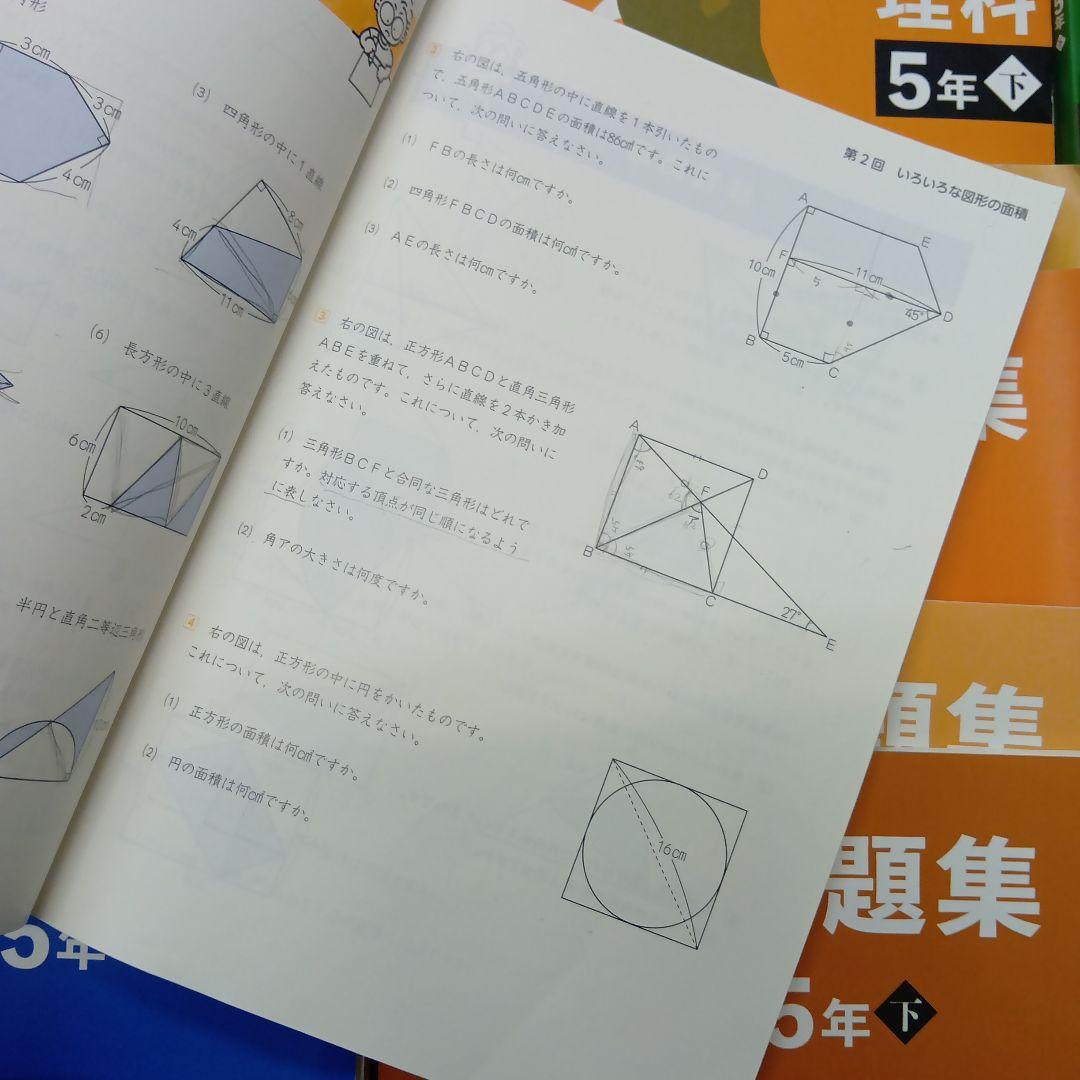 形
3cm
3cm
4cm
(3) 四角形の中に1直線
4cm
8cm
11cm
(6) 長方形の中に3直線
10cm
6cm
2cm
半円と直角二等辺三角形
第2回 いろいろな図形の面積
2 右の図は，五角形の中に直線を1本引いたもの
で，五角形ABCDEの面積は86cm²です。これに
ついて，次の問いに答えなさい。
(1) FBの長さは何cmですか。
(2) 四角形FBCDの面積は何cm²ですか。
(3) AEの長さは何cmですか。
A
E
F
10cm
11cm
5
45°
D
B
5cm
C
45
3 右の図は，正方形ABCDと直角三角形
ABEを重ねて，さらに直線を2本かき加
えたものです。これについて，次の問いに
答えなさい。
(1) 三角形BCFと合同な三角形はどれで
すか。対応する頂点が同じ順になるよう
に表しなさい。
(2) 角アの大きさは何度ですか。
A
D
F
ア
B
45
45
C
27°
E
4 右の図は，正方形の中に円をかいたものです。
これについて，次の問いに答えなさい。
(1) 正方形の面積は何cm²ですか。
(2) 円の面積は何cm²ですか。
16cm
理科
5年 下
集
題集
題集
5年 下
5年